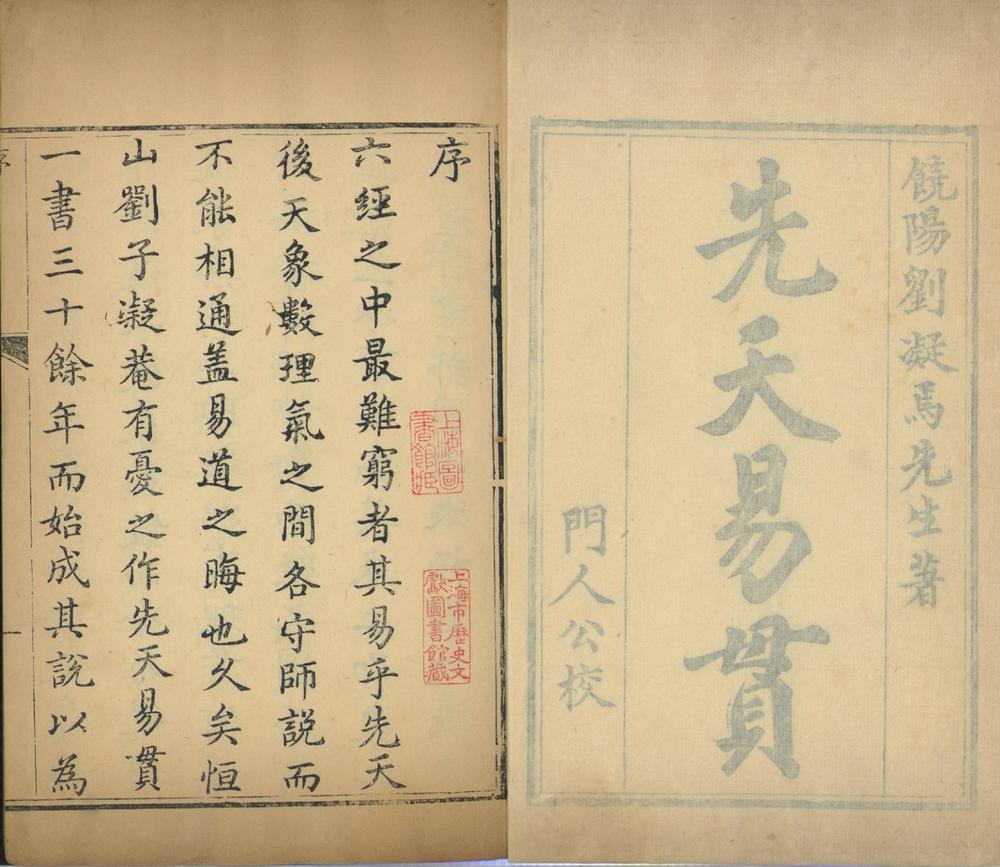 饒陽劉凝焉先生著
先天易貫
門人公校
序
六經之中最難窮者其易乎先天
後天象數理氣之間各守師說而
不能相通蓋易道之晦也久矣恒
山劉子凝菴有憂之作先天易貫
一書三十餘年而始成其說以為
上海圖
書館藏
上海市歷史文
獻圖書館藏
序
一